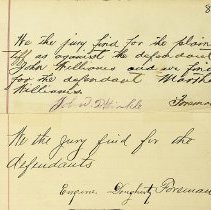 8
We the jury find for the plain
tiff as against the defendant
John Williams and we find
for the defendant Marsh
Williams.
Foreman
We the jury find for the
defendants
Eugene Dougherty Foreman